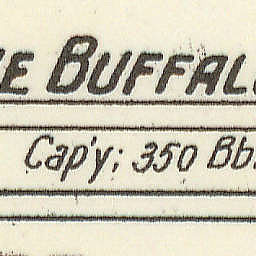 E BUFFAL
Cap'y; 350 Bb